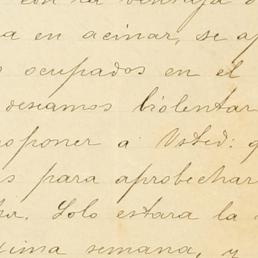 con la ventaja
a en acinar, se
ocupados en el
deseamos biolentar
oponer a Usted:
s para aprobechar
Solo estara la
xima semana, y